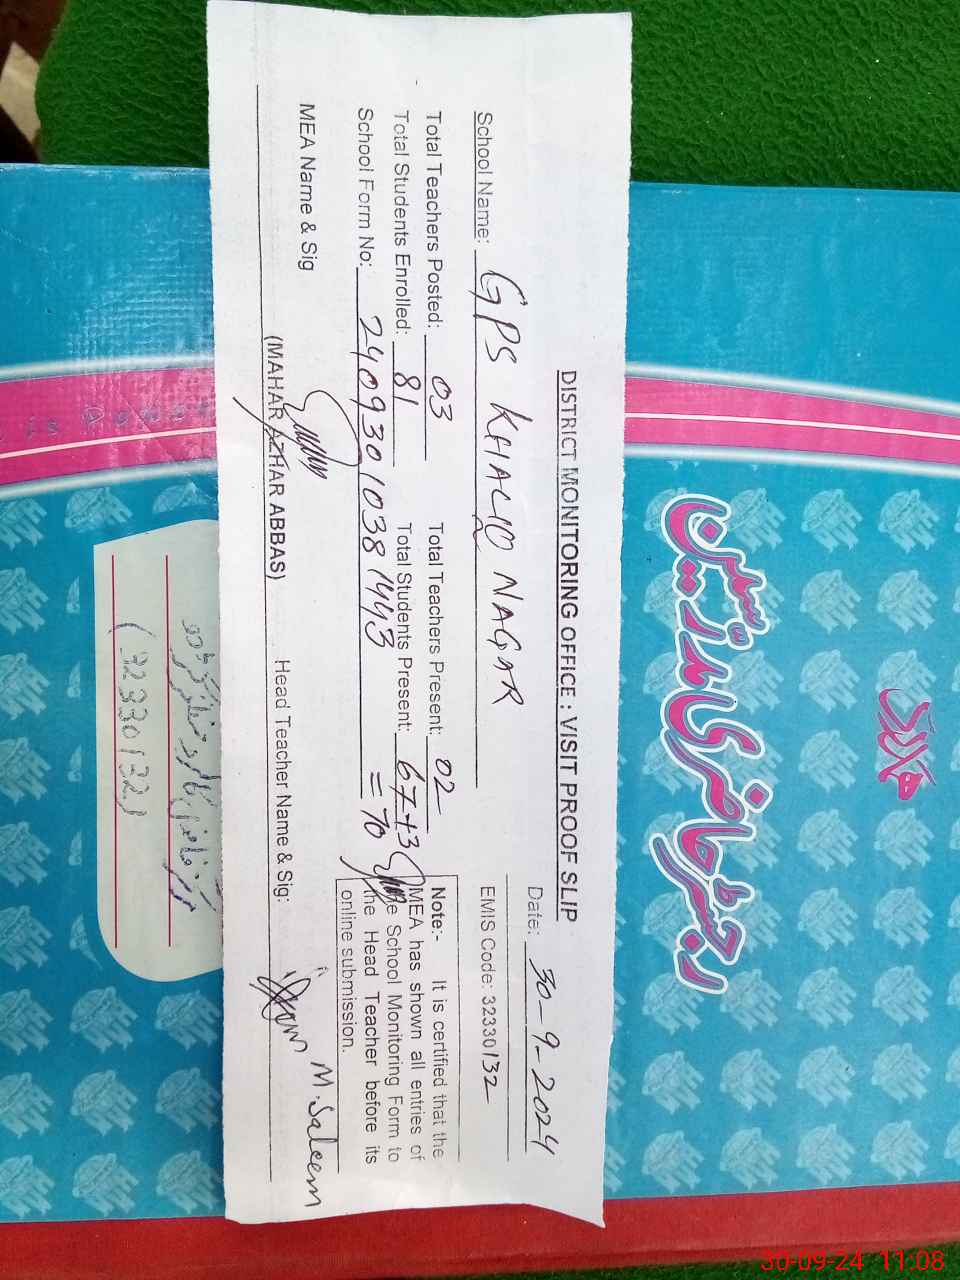 DISTRICT MONITORING OFFICE : VISIT PROOF SLIP
Date: 30-9-2024
School Name: GPS KHALID NAGAR EMIS Code: 32330132
Total Teachers Posted: 03 Total Teachers Present: 02
Total Students Enrolled: 81 Total Students Present: 67+3
= 70
School Form No: 24093010381443
Note:- It is certified that the
MEA has shown all entries of
the School Monitoring Form to
the Head Teacher before its
online submission.
MEA Name & Sig
(MAHAR AZHAR ABBAS)
Head Teacher Name & Sig:
M. Saleem
رجسٹر حاضری مدرسین
(32330132)
30-09-24 11:08